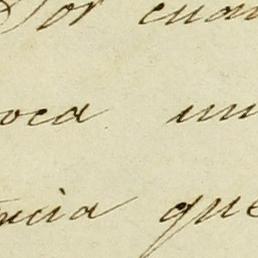 Por cuan
oca un
ncia que